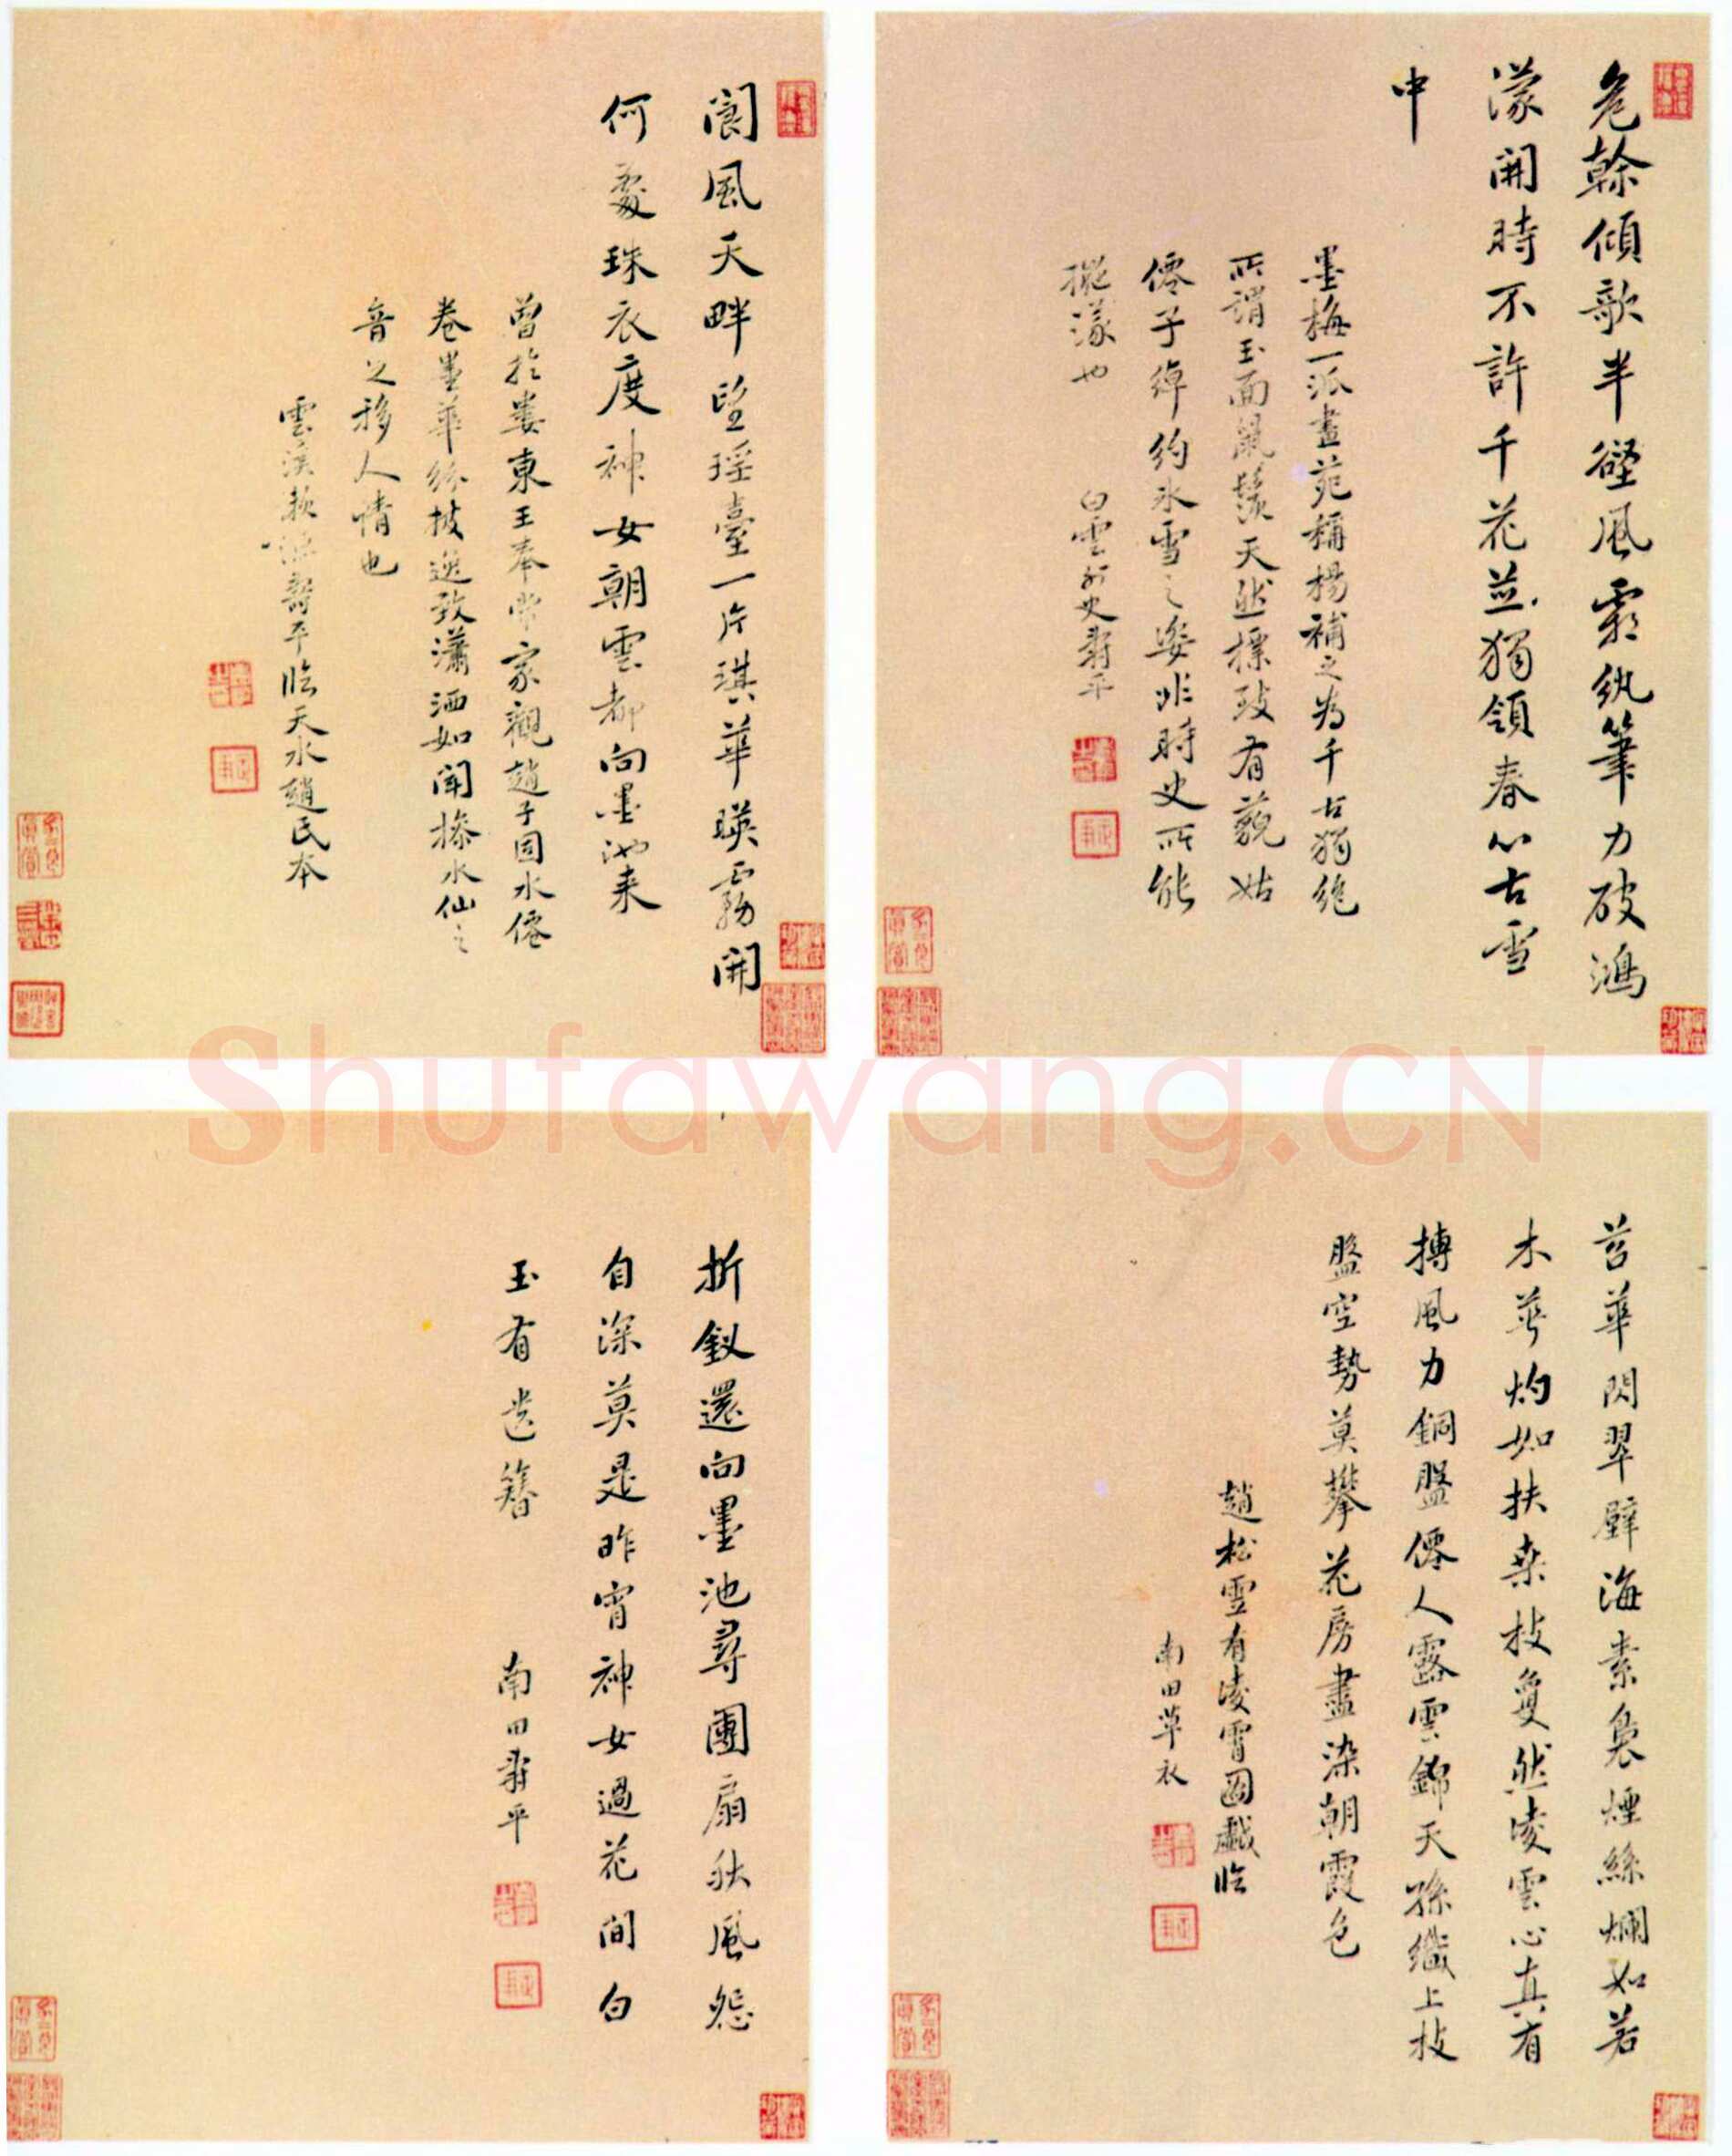 危榦傾欹半壁風霜紈筆力破鴻
濛開時不許千花並獨領春心古雪
中
墨梅一派畫苑稱楊補之為千古獨絕
所謂玉面風鬟天然標致有藐姑
僊子綽約冰雪之姿非時史所能
擬議也
白雲外史壽平
閬風天畔望瑤臺一片琪華暎霧開
何處珠衣度神女朝雲都向墨池來
曾於婁東王奉常家觀趙子固水僊
卷墨華紛披逸致瀟洒如聞操水仙之
音之移人情也
雲溪漁壽平臨天水趙氏本
苕華閃翠壁海素裊煙絲爛如若
木華灼如扶桑枝夐然凌雲心真有
搏風力銅盤僊人露雲錦天孫織上枝
盤空勢莫攀花房盡染朝霞色
趙松雪有凌霄圖戲臨
南田草衣
折釵還向墨池尋團扇秋風怨
自深莫是昨宵神女過花間白
玉有遺簪
南田壽平
Shufawang.CN